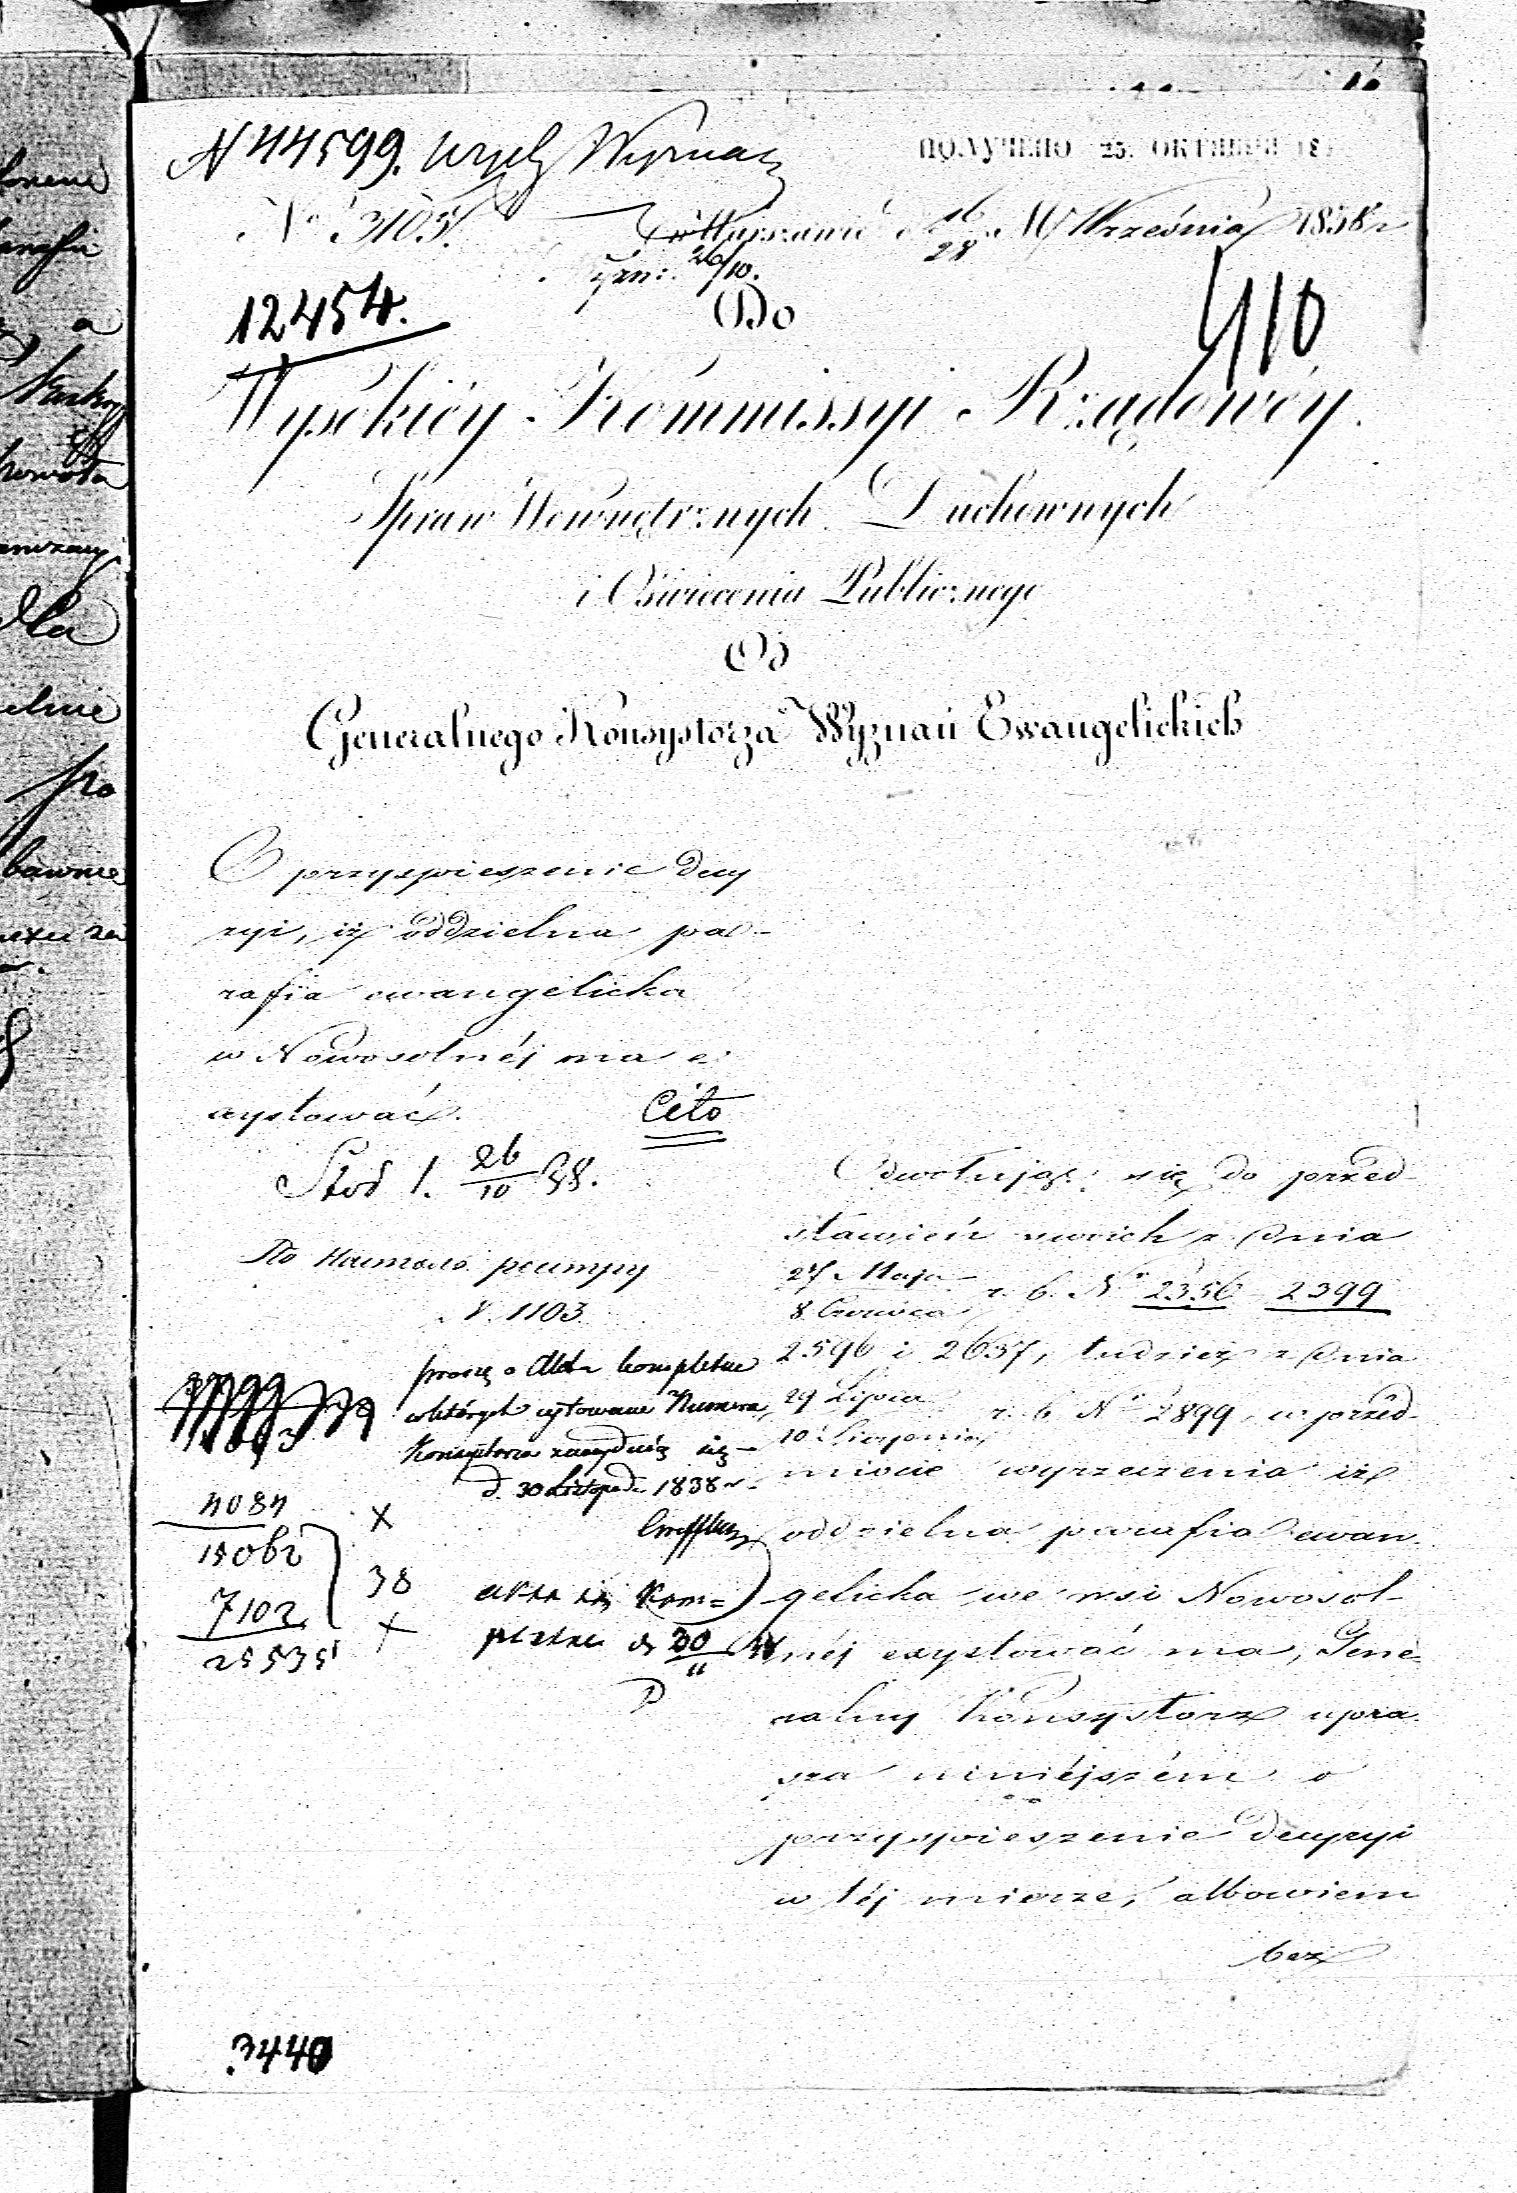 N 44599. Wyznań
ПОЛУЧЕНО 25. ОКТЯБРЯ 18
N° 3105.
w Warszawie d 16/28 M Września 1838 r
26/10.
12454.
410
Do
Wysokiéy Kommissyi Rządowéy
Spraw Wewnętrznych Duchownych
i Oświecenia Publicznego
Od
Generalnego Konsystorza Wyznań Ewangelickich
O przyspieszenie decy
zyi, iż oddzielna pa-
rafia ewangelicka
w Nowosolnéj ma e-
xystować.
Cito
26/10 38.
V. 1103
proszę o Akta kompletne
w których cytowane Numera
Konsystorza znajdują się
d. 30 Listopada 1838 r.
4084
15062
7102
25535
38
akta są kom=
pletne d 30/11
Odwołując się do przed-
stawień swoich z dnia
27 Maja / 8 Czerwca r. b. N° 2356 2399
2596 i 2657, tudzież z dnia
29 Lipca / 10 Sierpnia r. b. N° 2899, w przed-
miocie wyrzeczenia iż
oddzielna parafia ewan-
gelicka we wsi Nowosol-
néj exystować ma, Gene-
ralny Konsystorz upra-
sza niniéjszém o
przyspieszenie decyzyi
w téj mierze, albowiem
bez
3440